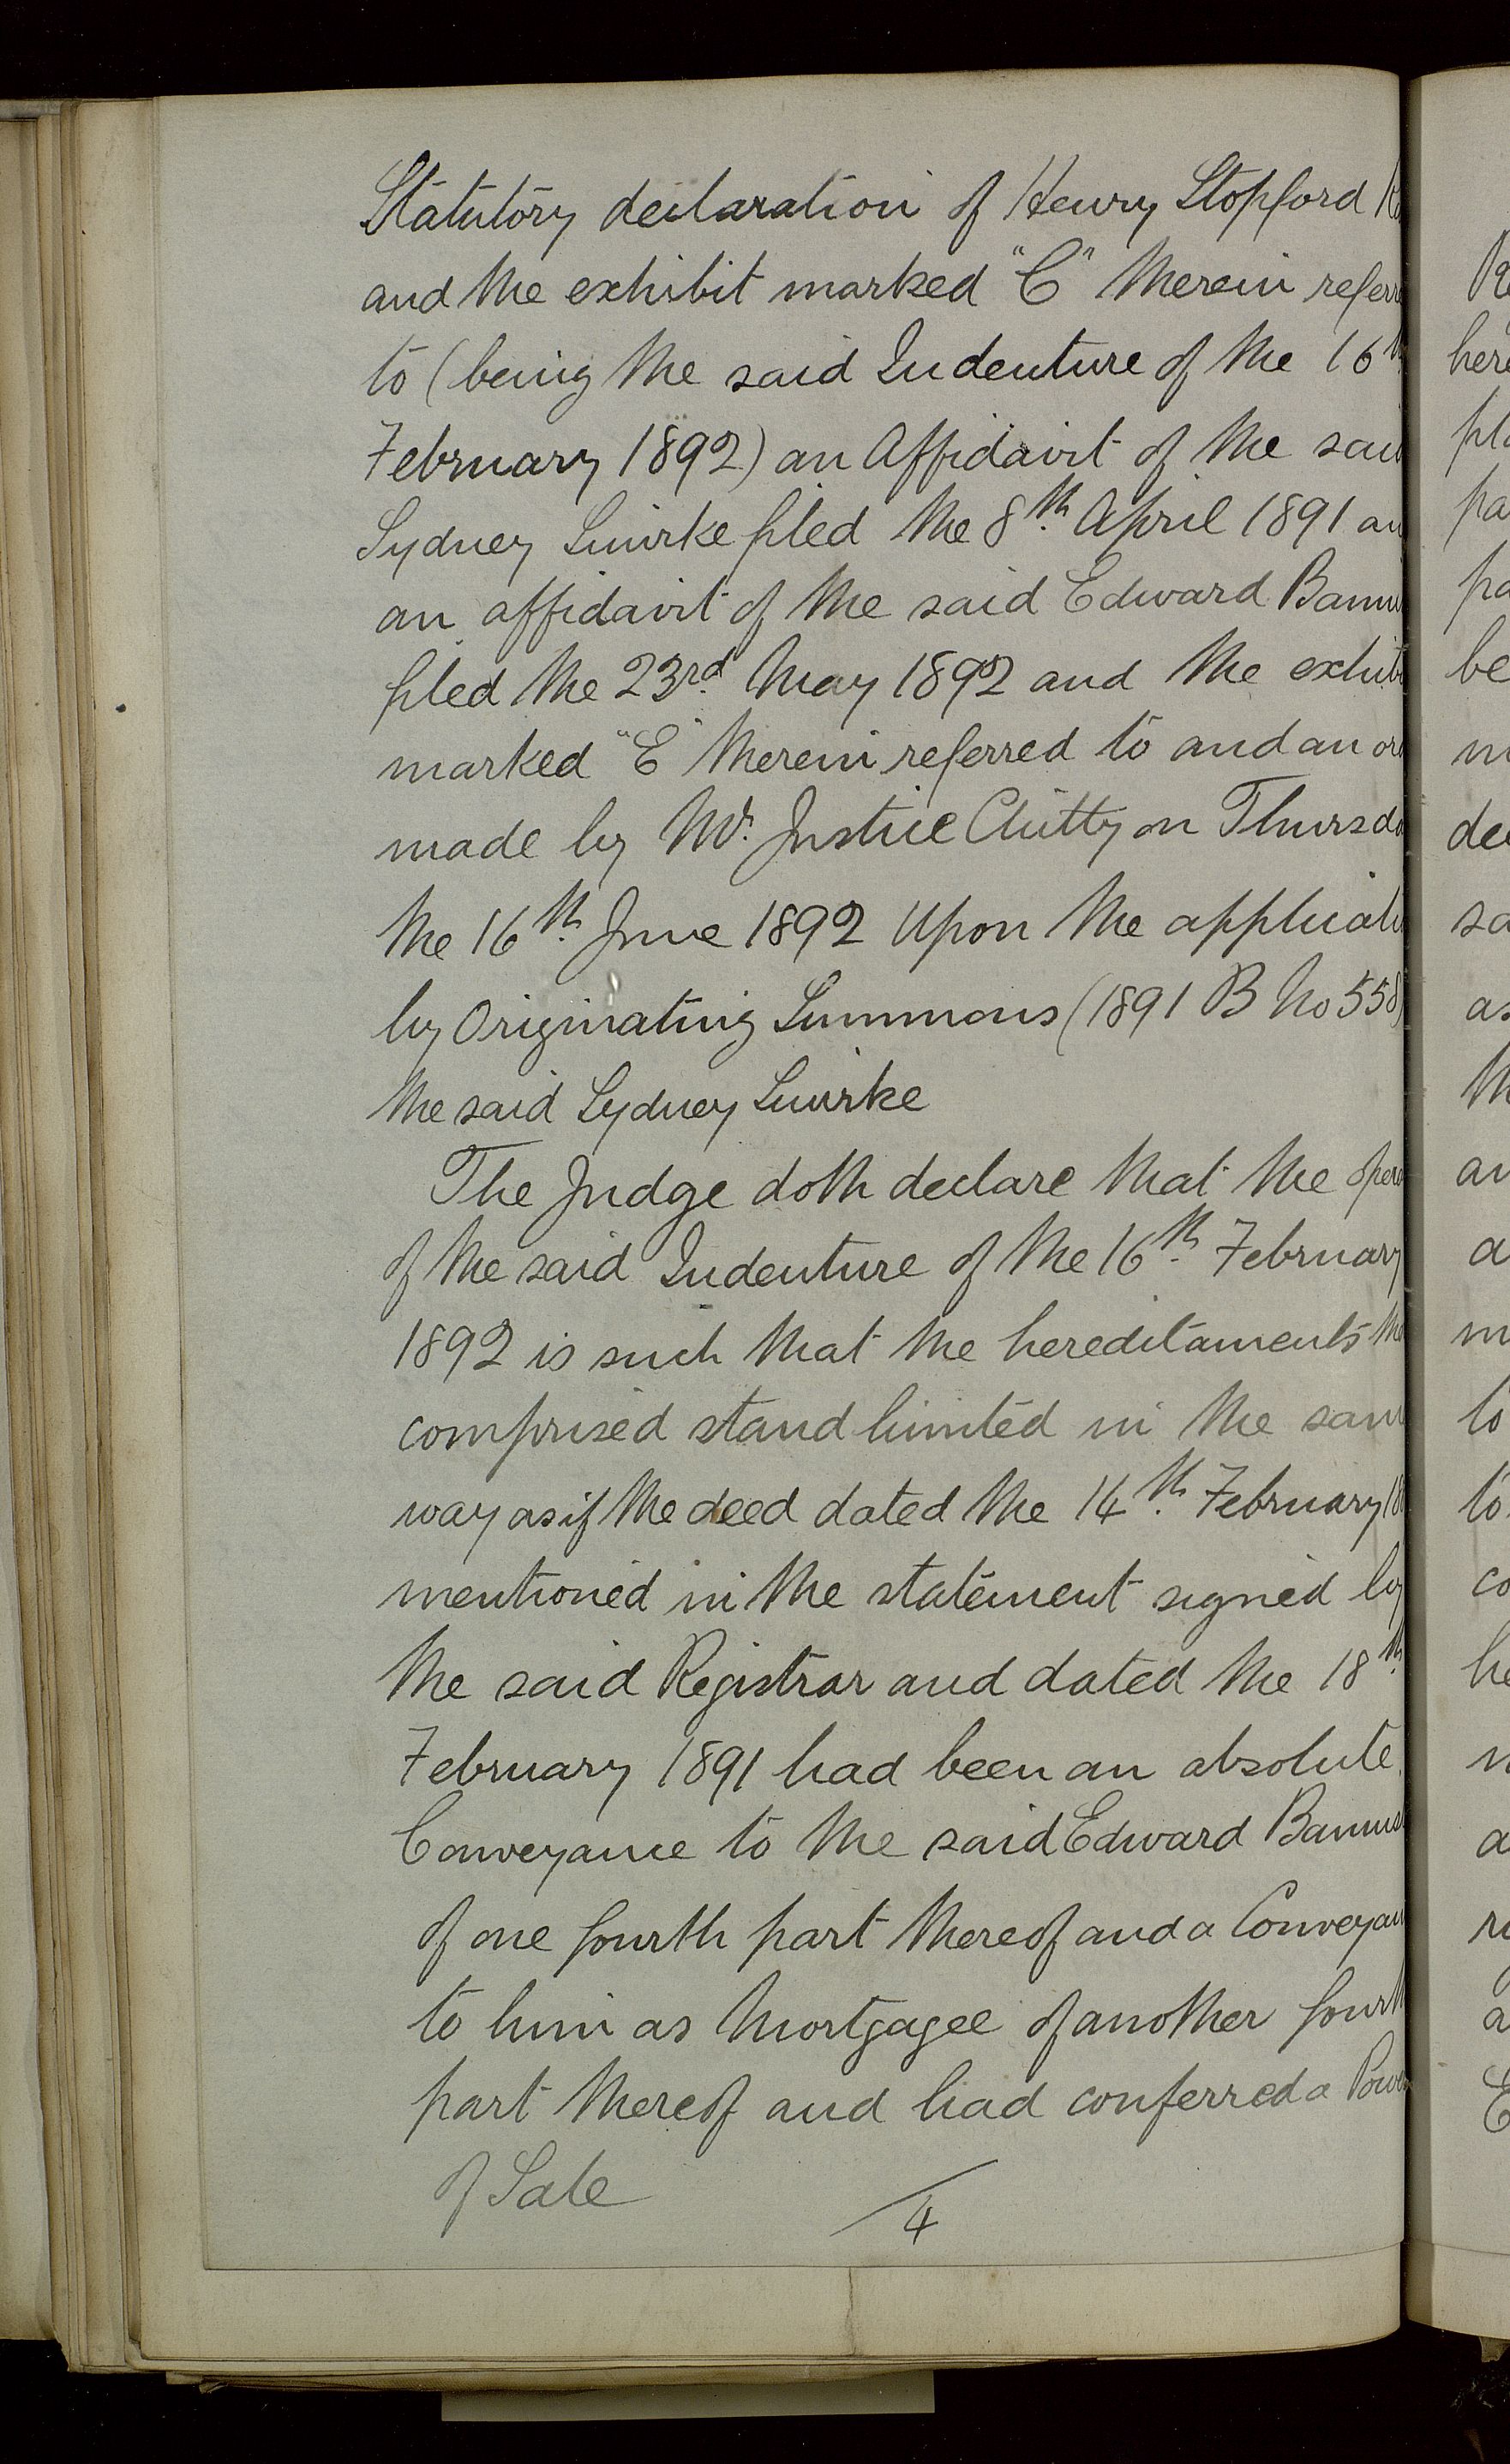 Statutory declaration of Henry Stopford
and the exhibit marked "C" therein referre
to (being the said Indenture of the 16th
February 1892) an Affidavit of the said
Sydney Smirke filed the 8th April 1891 an
an affidavit of the said Edward Bannis
filed the 23rd May 1892 and the exhibi
marked "E" therein referred to and an ord
made by Mr. Justice Chitty on Thursda
the 16th June 1892 Upon the applicati
by Originating Summons (1891 B No 558)
the said Sydney Smirke
The Judge doth declare that the opera
of the said Indenture of the 16th February
1892 is such that the hereditaments the
comprised stand limited in the same
way as if the deed dated the 14th February 18
mentioned in the statement signed by
the said Registrar and dated the 18th
February 1891 had been an absolute
Conveyance to the said Edward Bannis
of one fourth part thereof and a Conveyan
to him as Mortgagee of another fourth
part thereof and had conferred a Power
of Sale
4
here
pla
pa
pa
be
m
dec
sa
as
th
an
a
m
to
to
co
he
a
a
E